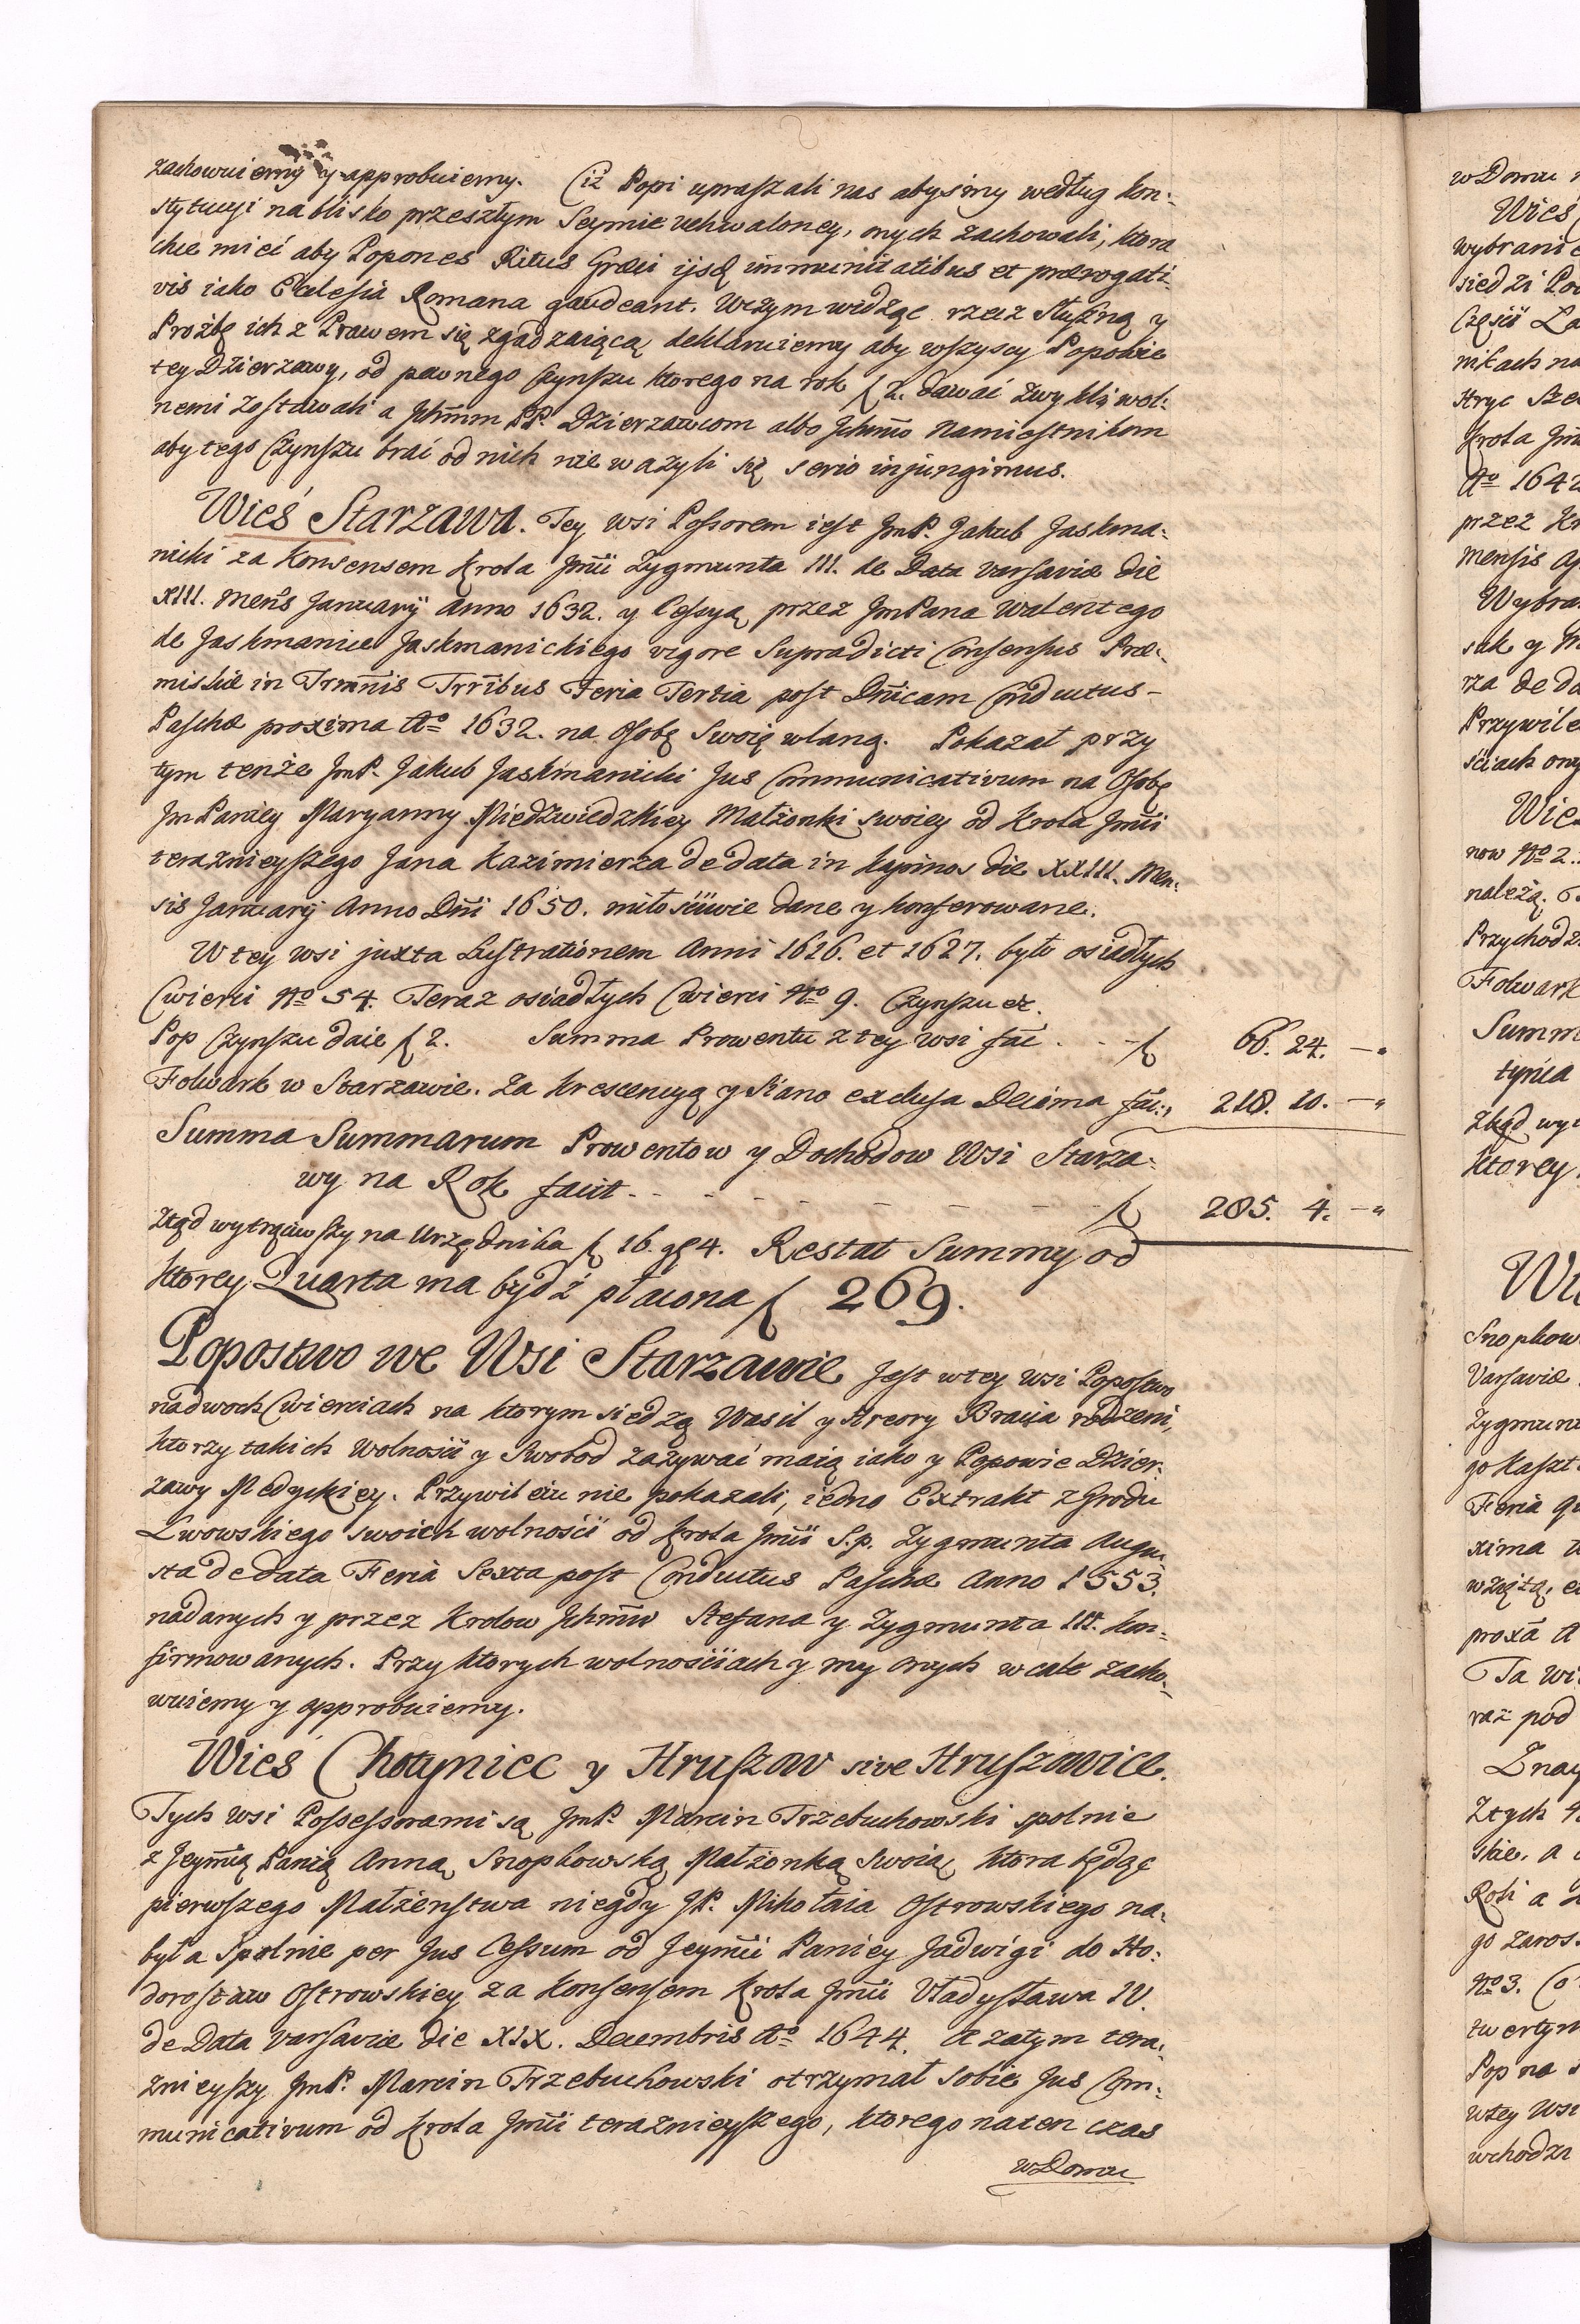 zachowuiemy y approbuiemy. Ciż Popi upraszali nas abysmy według kon:
stytucyi na blisko przeszłym Seymie uchwaloney, onych zachowali, ktora
chce mieć aby Popones Ritus Græci ijsdę immunitatibus et prærogati:
vis iako Ecclesia Romana gaudeant. W czym widząc rzecz słuszną y
Proźbę ich z Prawem się zgadzaiącą deklaruiemy aby wszyscy Popowie
tey Dzierzawy, od pewnego Czynszu ktorego na rok f 2. dawać zwykli wol:
nemi zostawali a Ichmm PP. Dzierzawcom albo Ichmo Namiestnikom
aby tego Czynszu brać od nich nie ważyli się serio injungimus.
Wieś Starzawa. Tey wsi Possorem iest JmP. Jakub Jaskma:
nicki za Konsensem Krola Jmci Zygmunta III. de Data Varsaviæ die
XIII. Mens Januarij Anno 1632. y Cessyą przez JmPana Walentego
de Jaskmanice Jaskmanickiego vigore Supradicti Consensus Præ:
misliæ in Trmnis Trribus Feria Tertia post Dnicam Conductus
Paschæ proxima Ao 1632. na Osobę Swoię wlaną. Pokazał przy
tym tenże JmP. Jakub Jaskmanicki Jus Communicativum na Osobę
Jm Paniey Maryanny Niedzwiedzkiey Małżonki swoiey od Krola Jmci
teraznieyszego Jana Kazimierza de data in Kapinos die XXIII. Men:
sis Januarij Anno Dni 1650. miłościwie dane y konferowane.
W tey wsi juxta Lustrationem Anni 1616. et 1627. było osiadłych
Cwierci No 54. Teraz osiadłych Cwierci No 9. Czynszu etc.
Pop Czynszu daie f 2. Summa Prowentu z tey wsi fac. . - f 66. 24. — "
Folwark w Starzawie. Za Krescencyą y Siano exclusa Decima fac:, 218. 10. — "
Summa Summarum Prowentow y Dochodow Wsi Starza:
wy na Rok facit. - - - - - - - f 285. 4. — "
Ztąd wytrąciwszy na Urzędnika f 16. gę 4. Restat Summy od
ktorey Quarta ma bydź płacona f 269.
Popostwo we Wsi Starzawie Jest w tey wsi Popostwo
na dwoch Cwierciach na ktorym siedzą Wasil y Hreory Bracia rodzeni,
ktorzy takich Wolności y Swobod zażywać maią iako y Popowie Dzier:
zawy Medyckiey. Przywileiu nie pokazali, iedno Extrakt z Grodu
Lwowskiego swoich wolności od Krola Jmci S.p. Zygmunta Augu:
sta de Data Feria Sexta post Conductus Paschæ Anno 1553.
nadanych y przez Krolow Ichmw Stefana y Zygmunta III. kon:
firmowanych. Przy ktorych wolnościach y my onych w cale zacho:
wuiemy y approbuiemy.
Wieś Chotyniec y Hruszow sive Hruszowice.
Tych wsi Possessorami są JmP. Marcin Trzebuchowski spolnie
z Jeymcią Panią Anną Snopkowską Małżonką Swoią, ktora będąc
pierwszego Małżenstwa niegdy JP. Mikołaia Ostrowskiego na:
była spolnie per Jus Cessum od Jeymci Paniey Jadwigi do Ho:
dorostaw Ostrowskiey za Konsensem Krola Jmci Vładysława IV.
de Data Varsaviæ die XIX. Decembris Ao 1644. A zatym tera:
znieyszy JmP. Marcin Trzebuchowski otrzymał sobie Jus Com:
municativum od Krola Jmci teraznieyszego, ktorego na ten czas
w Domu
w Domu
Wieś
wybrani
siedzi
Części
nikach na
Krola Jm
Ao 1642
przez
Mensis
Wybra
sak y
rza de da
Przywile
ściach ony
Wie
now No 2.
należą.
Przychod
Folwark
Summ
tyńca
Ztąd wy
ktorey
Snopkow
Varsaviæ
Zygmunt
go Kaszt
Feria
xima
wziętą,
proxa A
Ta wi
raz pod
Znay
Z tych
skie. a
Roli a
go zaros
No 3.
tu ertym
Pop na
w tey Wsi
wchodzi